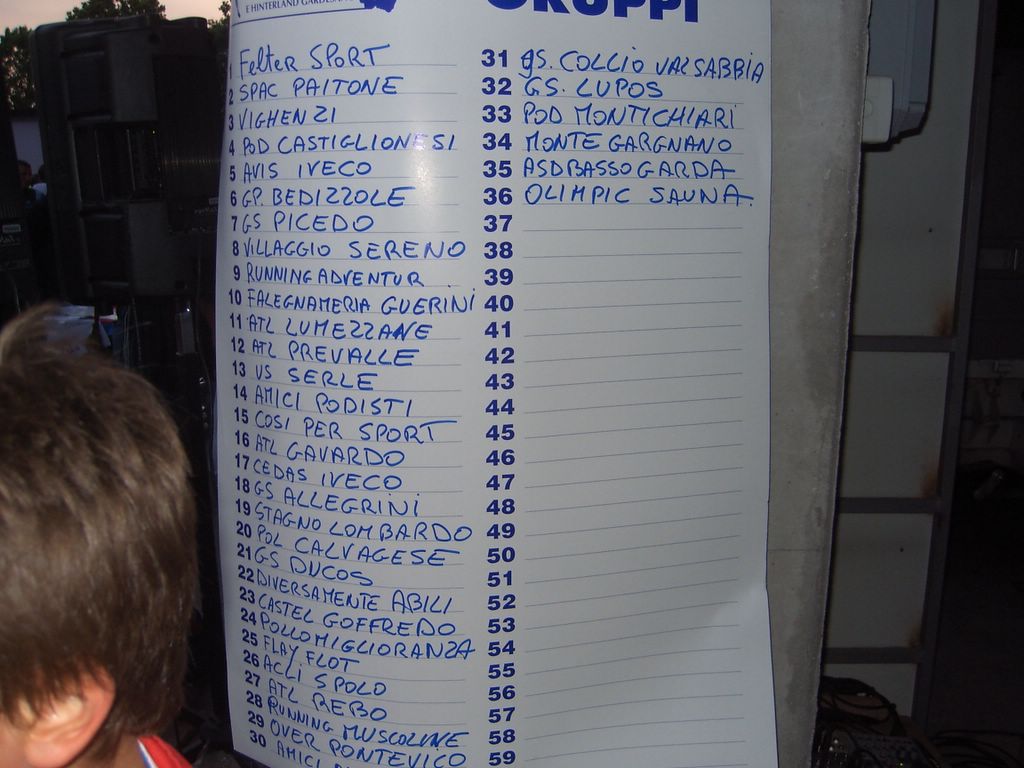 E HINTERLAND GARDESANO
GRUPPI
1 Felter SPORT
2 SPAC PAITONE
3 VIGHENZI
4 POD CASTIGLIONESI
5 AVIS IVECO
6 GP. BEDIZZOLE
7 GS PICEDO
8 VILLAGGIO SERENO
9 RUNNING ADVENTUR
10 FALEGNAMERIA GUERINI
11 ATL LUMEZZANE
12 ATL PREVALLE
13 US SERLE
14 AMICI PODISTI
15 COSI PER SPORT
16 ATL GAVARDO
17 CEDAS IVECO
18 GS ALLEGRINI
19 STAGNO LOMBARDO
20 POL CALVAGESE
21 GS DUCOS
22 DIVERSAMENTE ABILI
23 CASTEL GOFFREDO
24 POLLOMIGLIORANZA
25 FLAY FLOT
26 ACLI SPOLO
27 ATL REBO
28 RUNNING MUSCOLINE
29 OVER PONTEVICO
30 AMICI
31 GS. COLLIO VALSABBIA
32 GS. LUPOS
33 POD MONTICHIARI
34 MONTE GARGNANO
35 ASD BASSO GARDA
36 OLIMPIC SAUNA
37
38
39
40
41
42
43
44
45
46
47
48
49
50
51
52
53
54
55
56
57
58
59